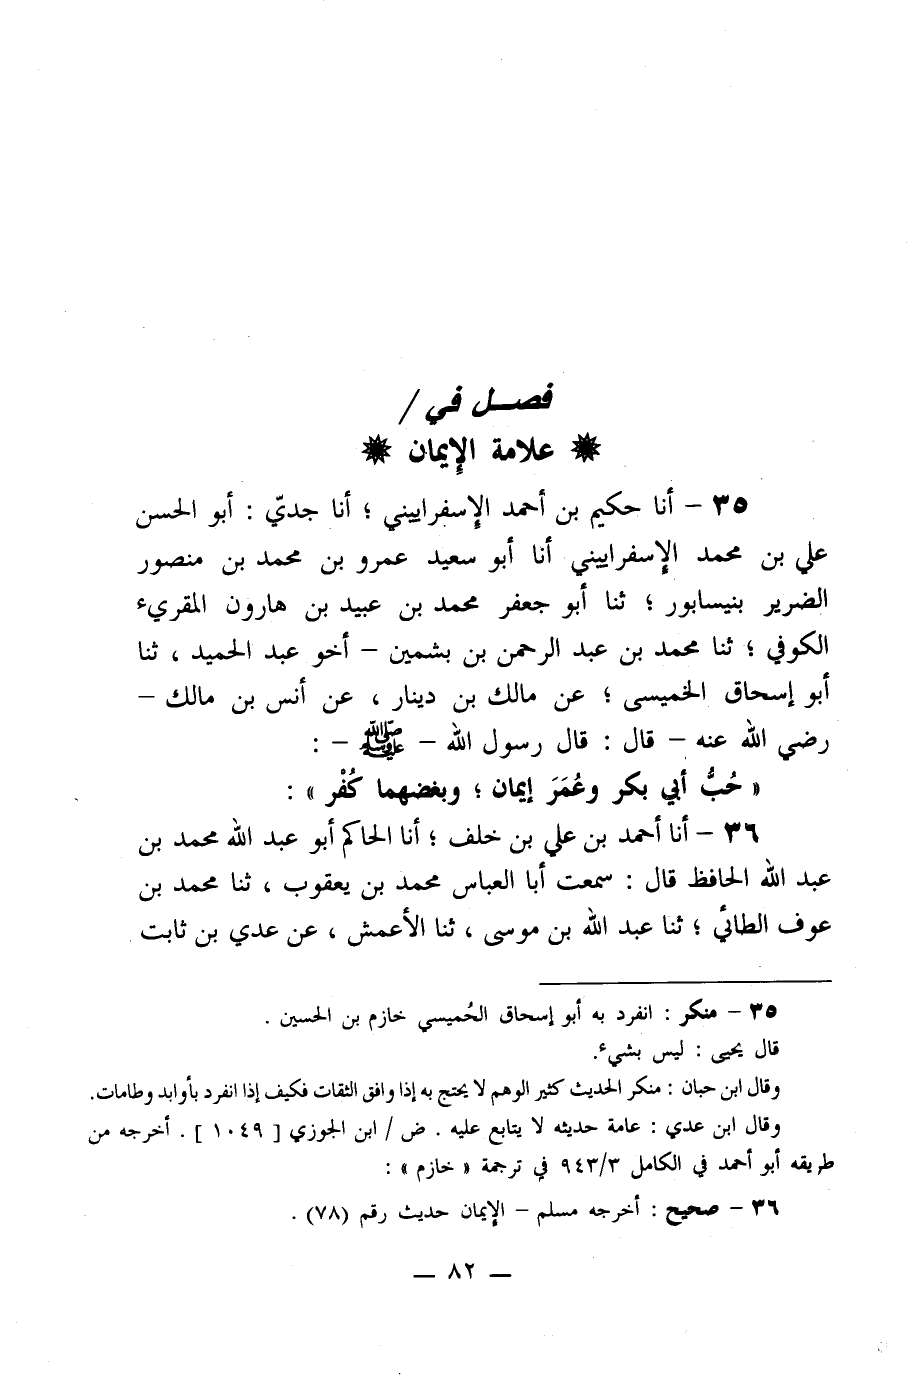 فصــل في /
❋ علامة الإيمان ❋
٣٥ – أنا حكيم بن أحمد الإسفراييني ؛ أنا جديّ : أبو الحسن
علي بن محمد الإسفراييني أنا أبو سعيد عمرو بن محمد بن منصور
الضرير بنيسابور ؛ ثنا أبو جعفر محمد بن عبيد بن هارون المقريء
الكوفي ؛ ثنا محمد بن عبد الرحمن بن بشمين – أخو عبد الحميد ، ثنا
أبو إسحاق الخميسى ؛ عن مالك بن دينار ، عن أنس بن مالك –
رضي الله عنه – قال : قال رسول الله – ﷺ – :
« حُبُّ أبي بكر وعُمَرَ إيمان ؛ وبغضهما كُفْر » :
٣٦ – أنا أحمد بن علي بن خلف ؛ أنا الحاكم أبو عبد الله محمد بن
عبد الله الحافظ قال : سمعت أبا العباس محمد بن يعقوب ، ثنا محمد بن
عوف الطائي ؛ ثنا عبد الله بن موسى ، ثنا الأعمش ، عن عدي بن ثابت
٣٥ – منكر : انفرد به أبو إسحاق الحُميسي خازم بن الحسين .
قال يحيى : ليس بشيء.
وقال ابن حبان : منكر الحديث كثير الوهم لا يحتج به إذا وافق الثقات فكيف إذا انفرد بأوابد وطامات.
وقال ابن عدي : عامة حديثه لا يتابع عليه . ض / ابن الجوزي [ ١٠٤٩ ] . أخرجه من
طريقه أبو أحمد في الكامل ٩٤٣/٣ في ترجمة « خازم » :
٣٦ – صحيح : أخرجه مسلم – الإيمان حديث رقم (٧٨) .
— ٨٢ —